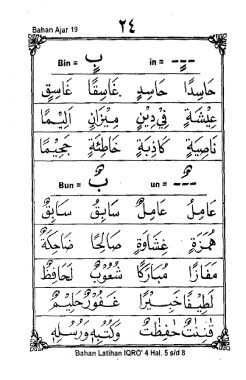 Bahan Ajar 19 ٢٤
Bin = بٍ in = ---ٍ
حَاسِدًا حَاسِدٍ غَاسِقًا غَاسِقٍ
عِيْشَةٍ فِيْ دِيْنٍ مِيْزَانٍ اَلِيْمًا
نَاصِيَةٍ كَاذِبَةٍ خَاطِئَةٍ جَحِيْمًا
Bun = بٌ un = ---ٌ
عَامِلُ عَامِلٌ سَابِقُ سَابِقٌ
هُمَزَةٍ غِشَاوَةٌ صَالِحًا ضَاحِكَةٌ
مَفَازًا مُبَارَكًا شُعُوْبٌ لَحَافِظٌ
لَطِيْفًا خَبِيْرًا غَفُوْرٌ حَلِيْمٌ
قٰنِتٰتٌ حٰفِظٰتٌ وَكُتُبِهٖ وَرُسُلِهٖ
Bahan Latihan IQRO' 4 Hal. 5 s/d 8